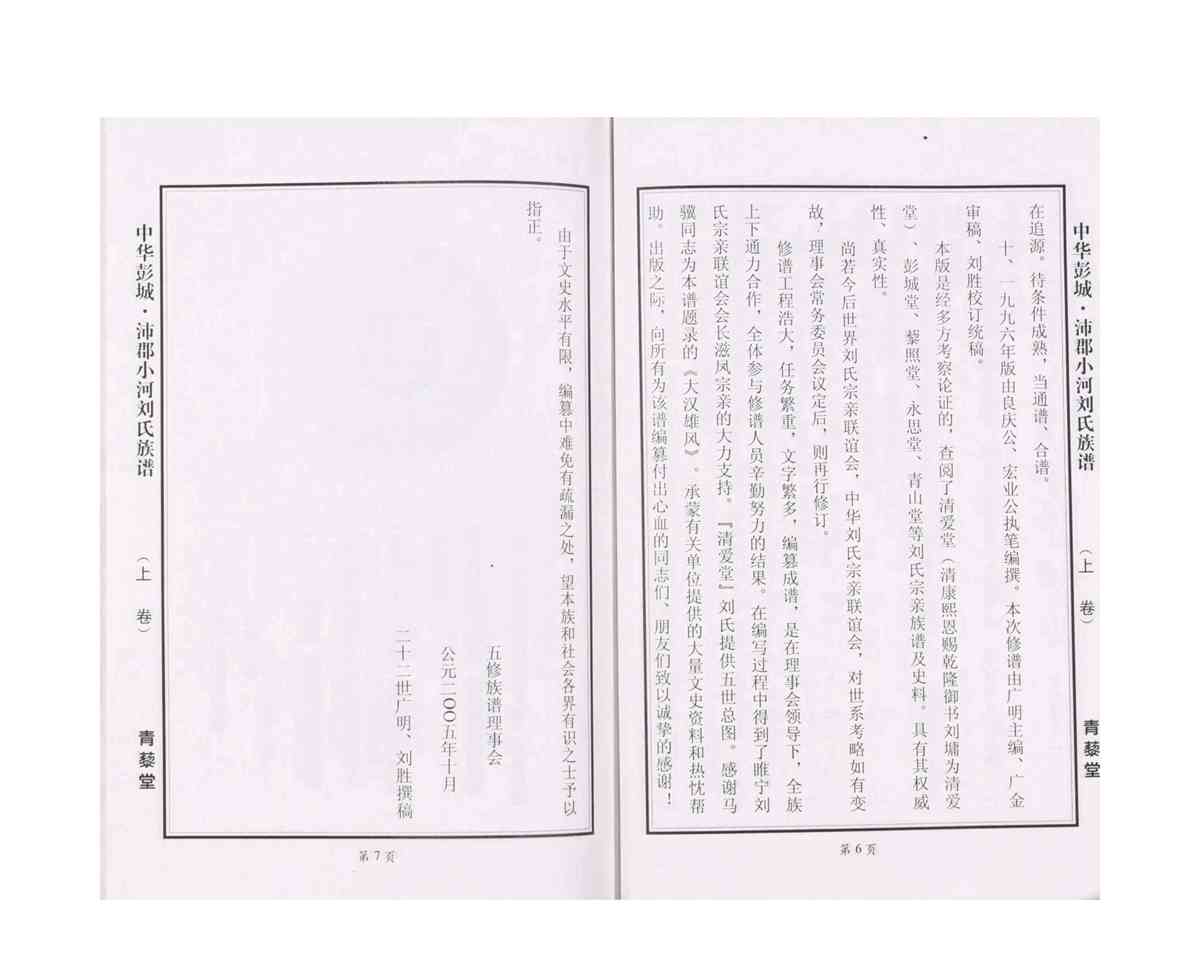 中华彭城·沛郡小河刘氏族谱
（上 卷）
青藜堂
在追源。待条件成熟，当通谱、合谱。
十、一九九六年版由良庆公、宏业公执笔编撰。本次修谱由广明主编、广金
审稿、刘胜校订统稿。
本版是经多方考察论证的，查阅了清爱堂（清康熙恩赐乾隆御书刘墉为清爱
堂）、彭城堂、藜照堂、永思堂、青山堂等刘氏宗亲族谱及史料。具有其权威
性、真实性。
尚若今后世界刘氏宗亲联谊会，中华刘氏宗亲联谊会，对世系考略如有变
故，理事会常务委员会议定后，则再行修订。
修谱工程浩大，任务繁重，文字繁多，编篡成谱，是在理事会领导下，全族
上下通力合作，全体参与修谱人员辛勤努力的结果。在编写过程中得到了睢宁刘
氏宗亲联谊会会长滋凤宗亲的大力支持。『清爱堂』刘氏提供五世总图。感谢马
骥同志为本谱题录的《大汉雄风》。承蒙有关单位提供的大量文史资料和热忱帮
助。出版之际，向所有为该谱编篡付出心血的同志们、朋友们致以诚挚的感谢！
第6页
由于文史水平有限，编篡中难免有疏漏之处，望本族和社会各界有识之士予以
指正。
五修族谱理事会
公元二〇〇五年十月
二十二世广明、刘胜撰稿
中华彭城·沛郡小河刘氏族谱
（上 卷）
青藜堂
第7页